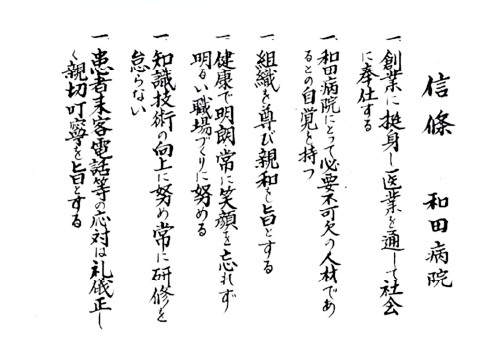 信條 和田病院
一、創業に挺身し医業を通して社会
に奉仕する
一、和田病院にとって必要不可欠の人材であ
るとの自覚を持つ
一、組織を尊び親和を旨とする
一、健康で明朗常に笑顔を忘れず
明るい職場づくりに努める
一、知識技術の向上に努め常に研修を
怠らない
一、患者来客電話等の応対は礼儀正し
く親切叮寧を旨とする